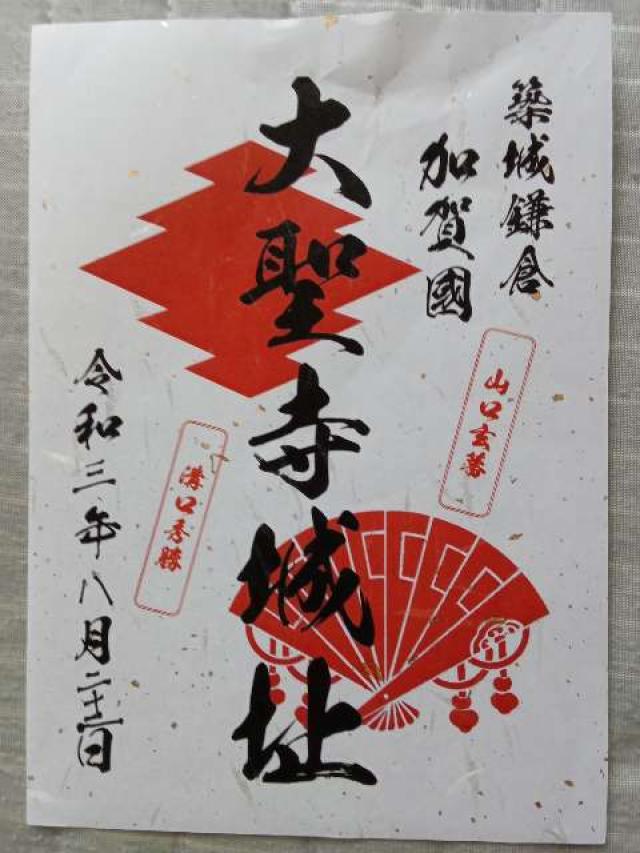 築城鎌倉
加賀國
山口玄蕃
大聖寺城址
溝口秀勝
令和三年八月二十二日